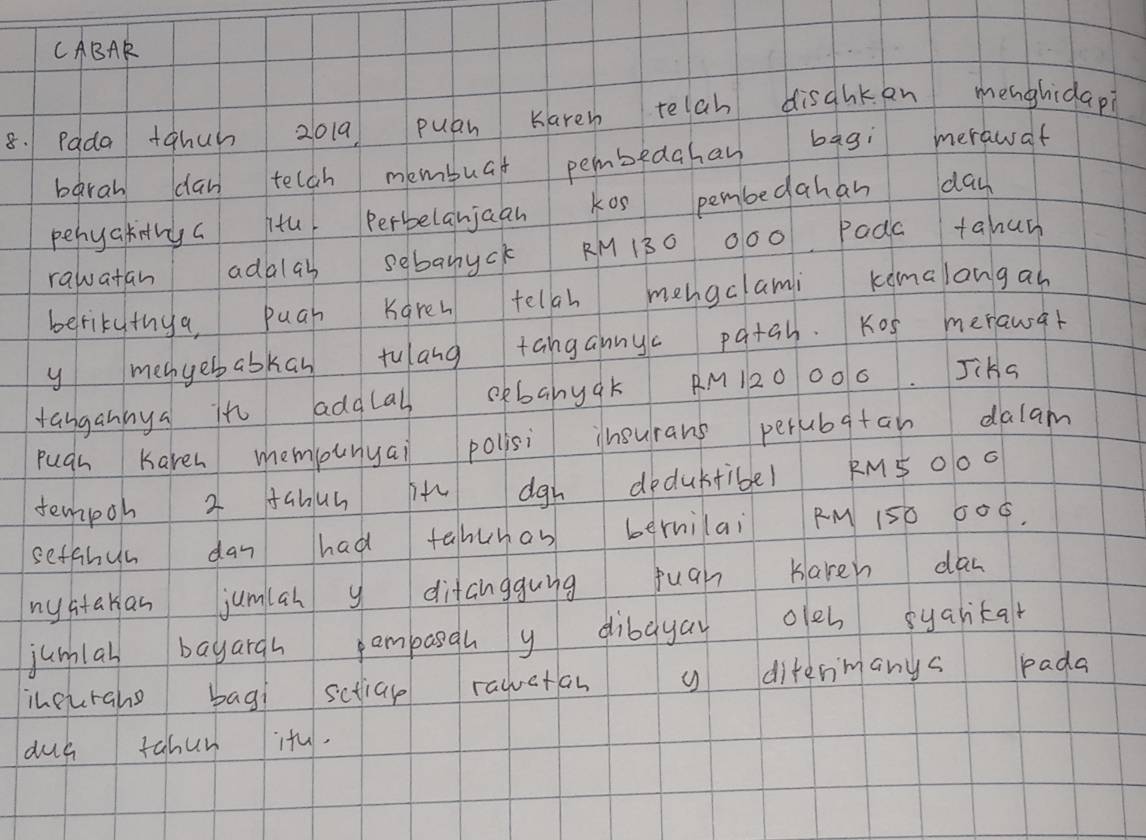 CABAR
8. Pada tahun 2019, Puan Karen telah disahkan menghidapi
barah dan telah membuat pembedahan bagi merawat
penyakitnya itu. Perbelanjaan kos pembedahan dan
rawatan adalah sebanyak RM 130 000. Pada tahun
berikutnya, Puan Karen telah mengalami kemalangan
y menyebabkan tulang tangannya patah. Kos merawat
tangannya itu adalah sebanyak RM 120 000. Jika
Puan Karen mempunyai polisi insurans perubatan dalam
tempoh 2 tahun itu dgn deduktibel RM 5 000
setahun dan had tahunan bernilai RM 150 000.
nyatakan jumlah y ditanggung Puan Karen dan
jumlah bayaran pampasan y dibayar oleh syarikat
insurans bagi setiap rawatan y diterimanya pada
dua tahun itu.